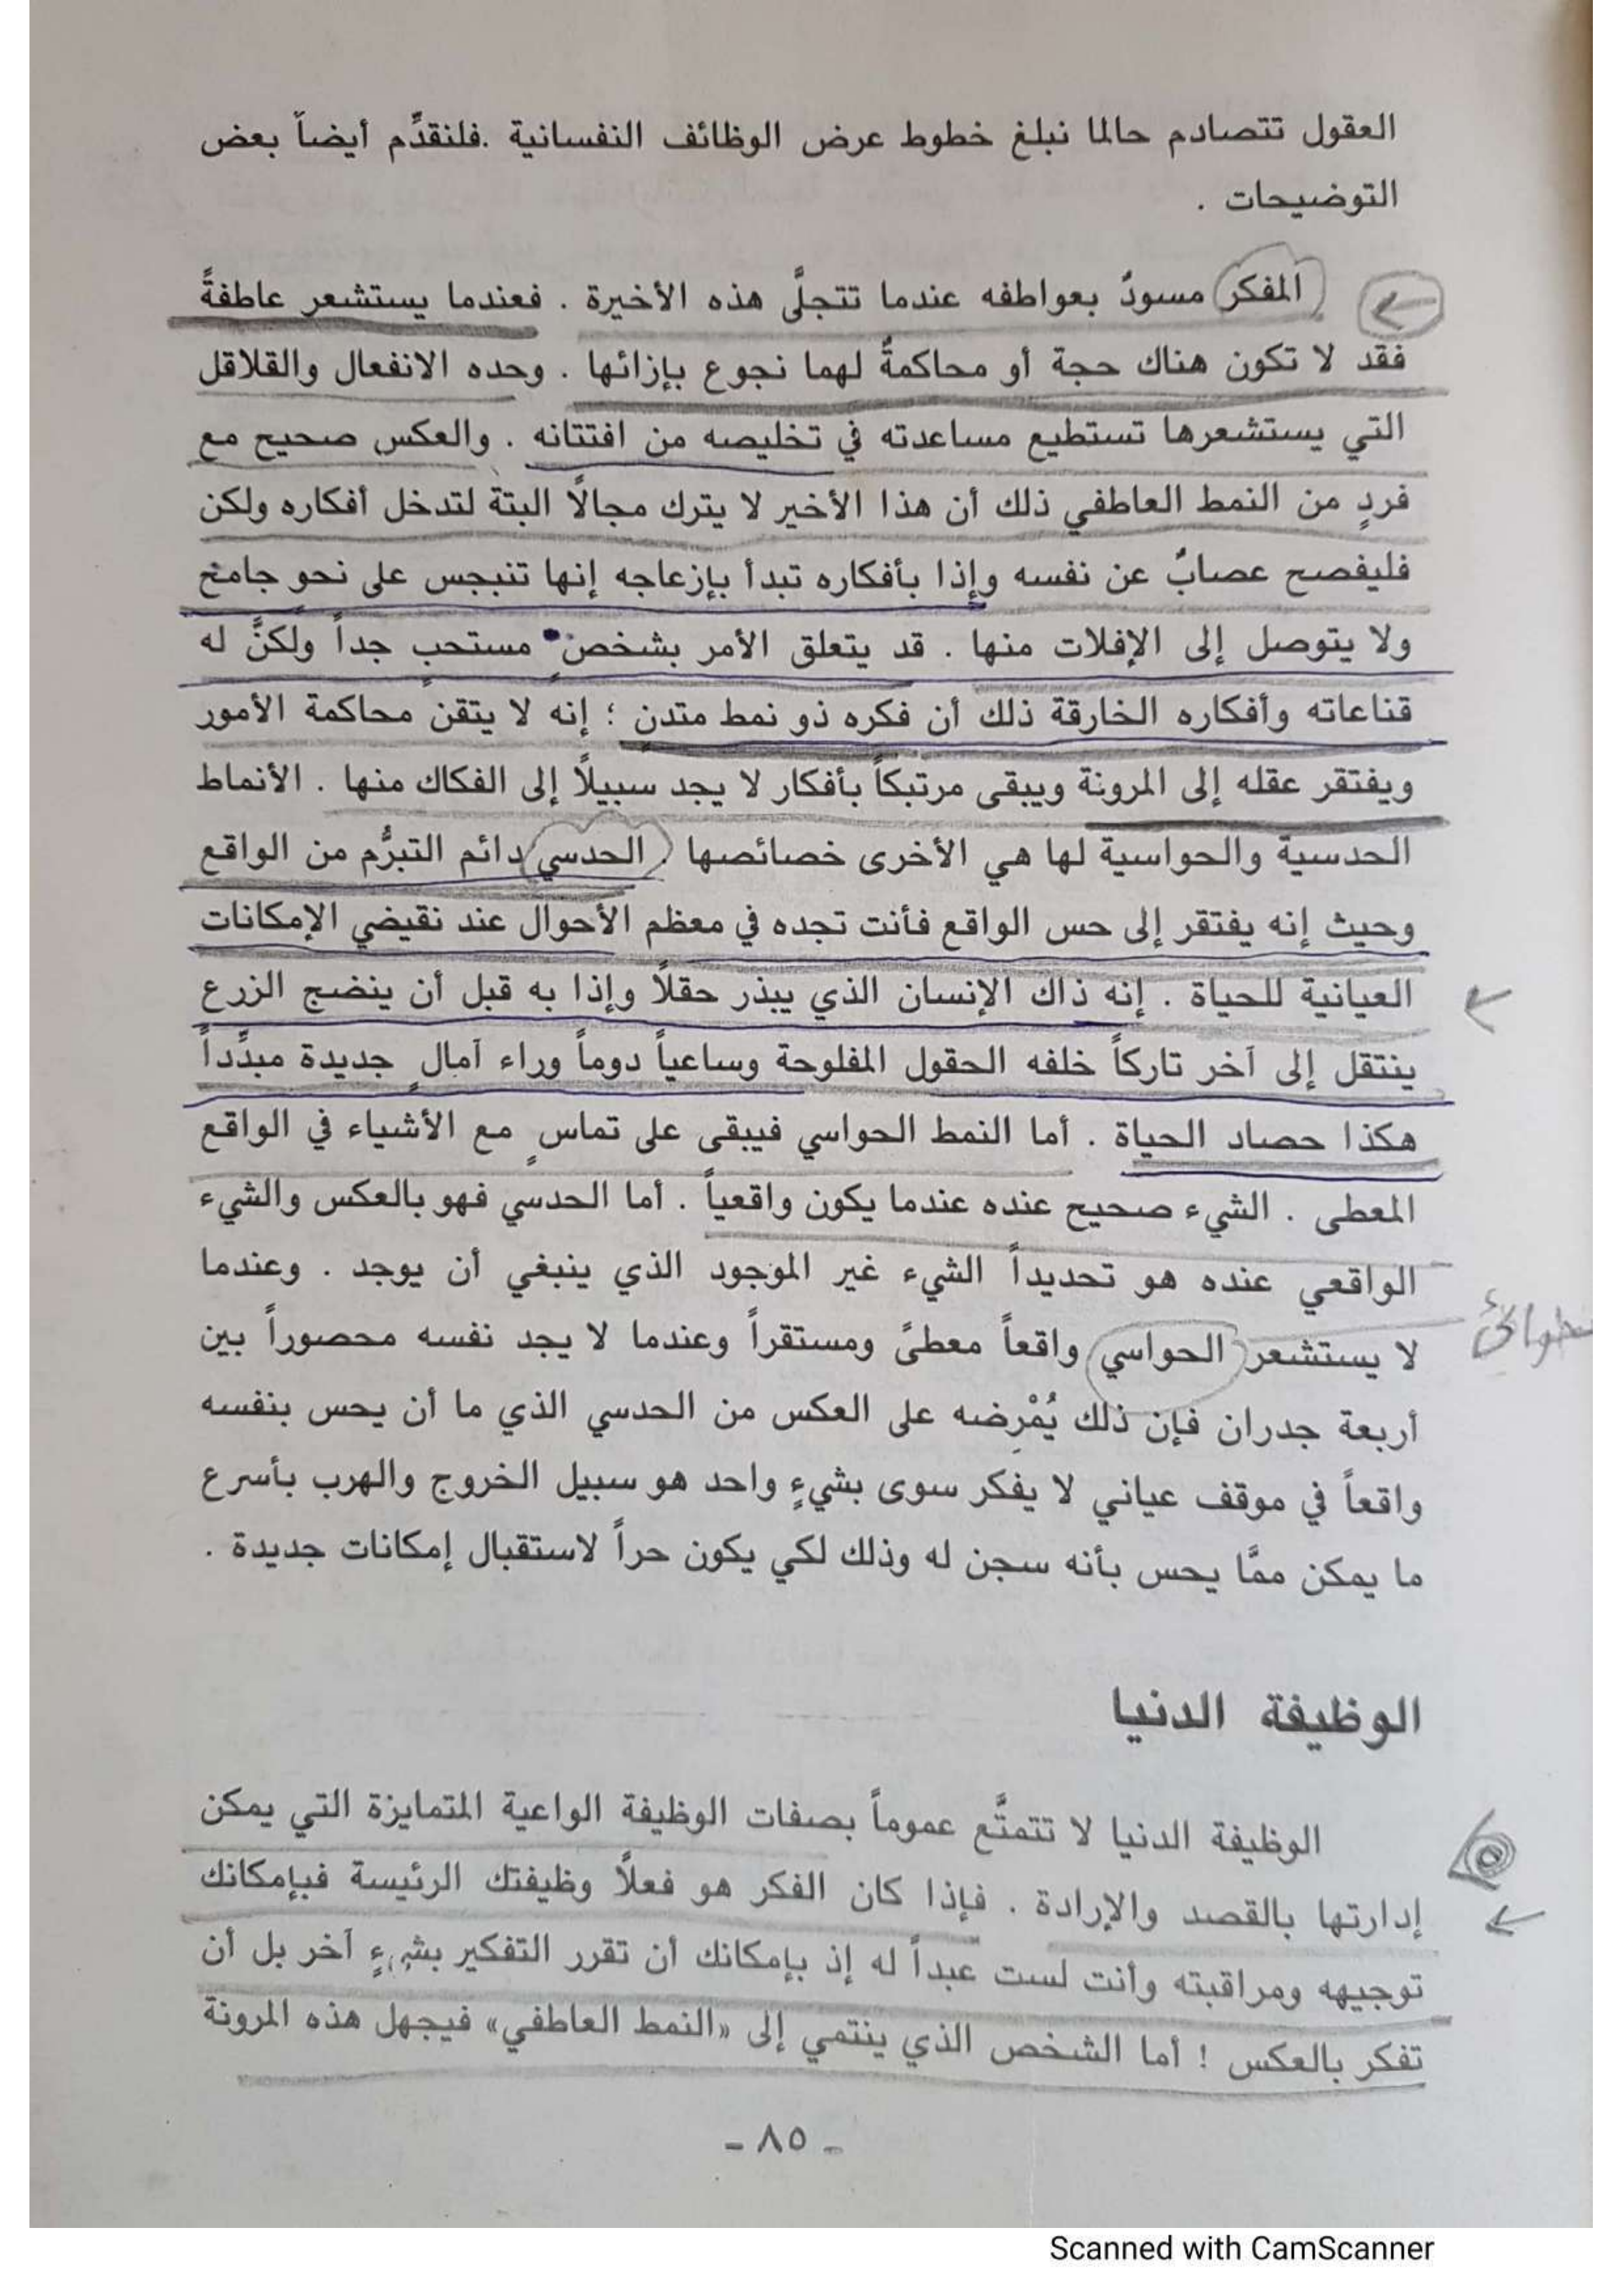 العقول تتصادم حالما نبلغ خطوط عرض الوظائف النفسانية .فلنقدِّم أيضاً بعض
التوضيحات .
المفكر مسودٌ بعواطفه عندما تتجلَّى هذه الأخيرة . فعندما يستشعر عاطفةً
فقد لا تكون هناك حجة أو محاكمةٌ لهما نجوع بإزائها . وحده الانفعال والقلاقل
التي يستشعرها تستطيع مساعدته في تخليصه من افتتانه . والعكس صحيح مع
فردٍ من النمط العاطفي ذلك أن هذا الأخير لا يترك مجالًا البتة لتدخل أفكاره ولكن
فليفصح عصابٌ عن نفسه وإذا بأفكاره تبدأ بإزعاجه إنها تنبجس على نحو جامح
ولا يتوصل إلى الإفلات منها . قد يتعلق الأمر بشخصٍ مستحبٍ جداً ولكنَّ له
قناعاته وأفكاره الخارقة ذلك أن فكره ذو نمط متدنٍ ؛ إنه لا يتقن محاكمة الأمور
ويفتقر عقله إلى المرونة ويبقى مرتبكاً بأفكار لا يجد سبيلاً إلى الفكاك منها . الأنماط
الحدسية والحواسية لها هي الأخرى خصائصها . الحدسي دائم التبرُّم من الواقع
وحيث إنه يفتقر إلى حس الواقع فأنت تجده في معظم الأحوال عند نقيضي الإمكانات
العيانية للحياة . إنه ذاك الإنسان الذي يبذر حقلاً وإذا به قبل أن ينضج الزرع
ينتقل إلى آخر تاركاً خلفه الحقول المفلوحة وساعياً دوماً وراء آمالٍ جديدة مبدِّداً
هكذا حصاد الحياة . أما النمط الحواسي فيبقى على تماسٍ مع الأشياء في الواقع
المعطى . الشيء صحيح عنده عندما يكون واقعياً . أما الحدسي فهو بالعكس والشيء
الواقعي عنده هو تحديداً الشيء غير الموجود الذي ينبغي أن يوجد . وعندما
لا يستشعر الحواسي واقعاً معطىً ومستقراً وعندما لا يجد نفسه محصوراً بين
أربعة جدران فإن ذلك يُمْرِضه على العكس من الحدسي الذي ما أن يحس بنفسه
واقعاً في موقف عياني لا يفكر سوى بشيءٍ واحد هو سبيل الخروج والهرب بأسرع
ما يمكن ممَّا يحس بأنه سجن له وذلك لكي يكون حراً لاستقبال إمكانات جديدة .
الوظيفة الدنيا
الوظيفة الدنيا لا تتمتَّع عموماً بصفات الوظيفة الواعية المتمايزة التي يمكن
إدارتها بالقصد والإرادة . فإذا كان الفكر هو فعلًا وظيفتك الرئيسة فبإمكانك
توجيهه ومراقبته وأنت لست عبداً له إذ بإمكانك أن تقرر التفكير بشيءٍ آخر بل أن
تفكر بالعكس ! أما الشخص الذي ينتمي إلى «النمط العاطفي» فيجهل هذه المرونة
- ٨٥ -
Scanned with CamScanner